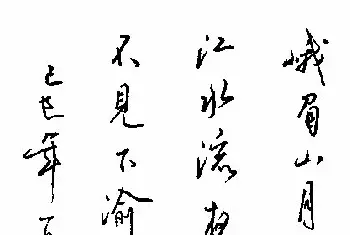 峨眉山月
江水流
不見下渝
己巳年